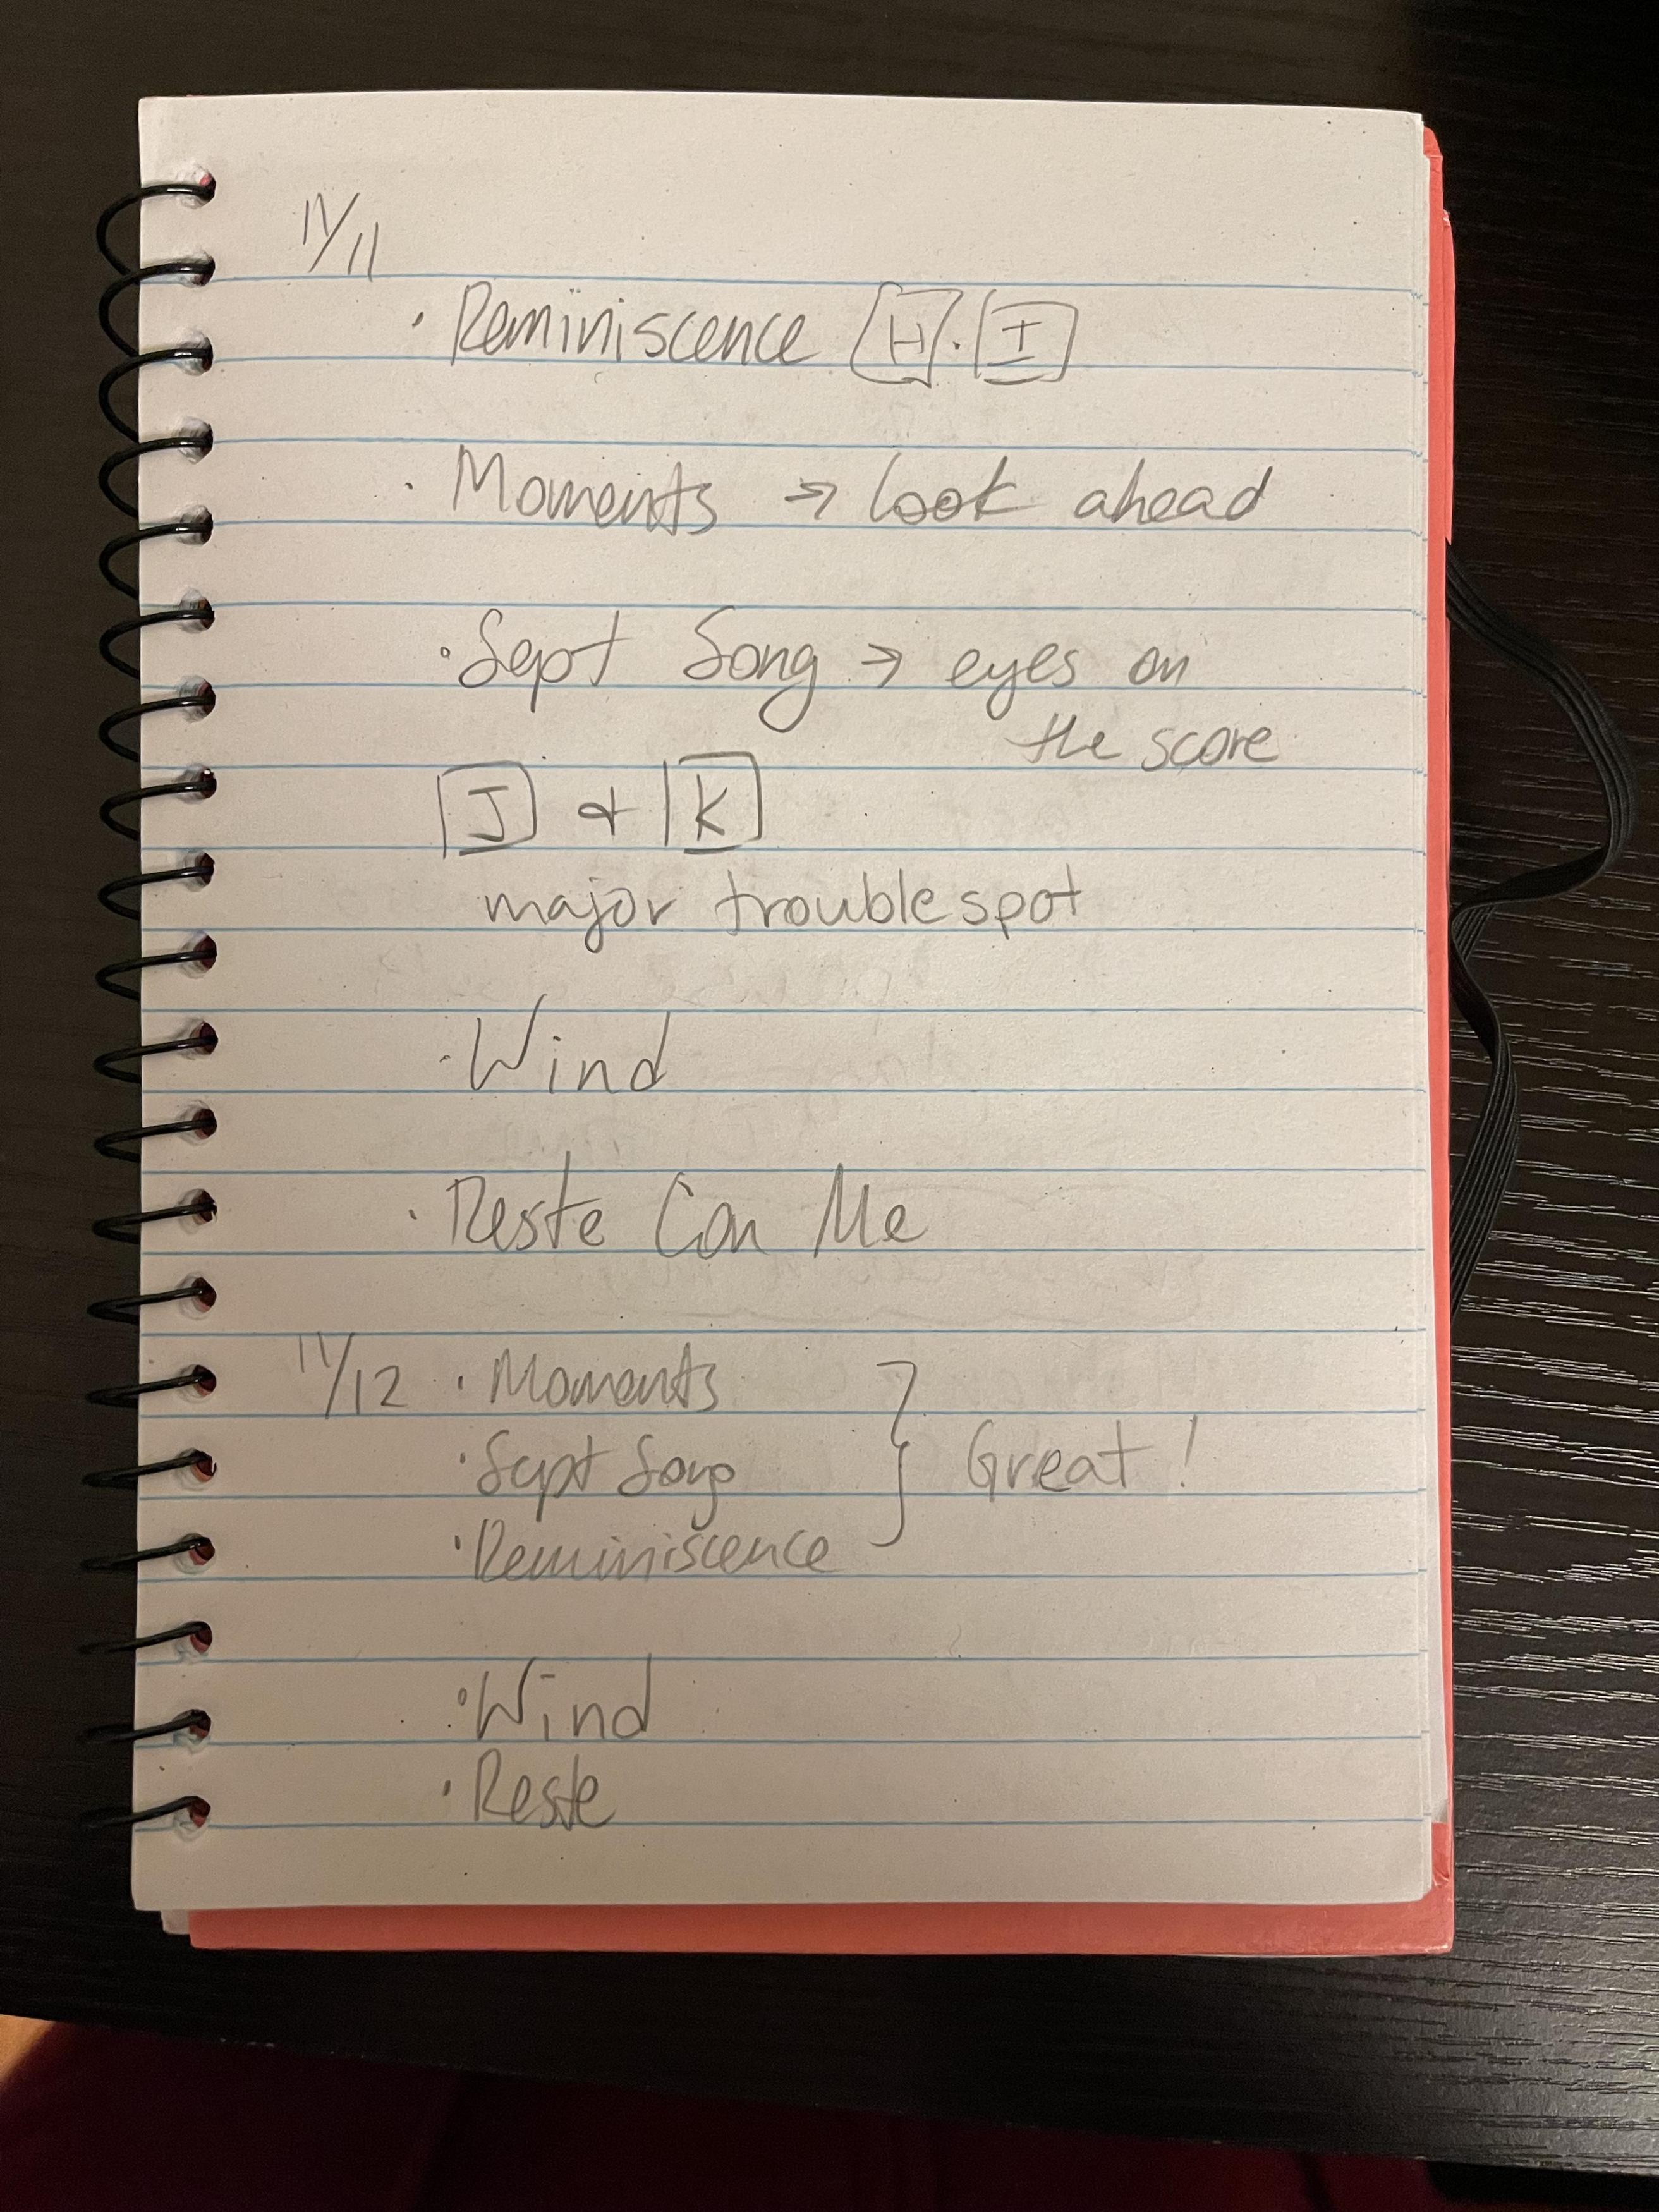 11/11
· Reminiscence H · I
· Moments → look ahead
· Sept Song → eyes on
the score
J & K
major trouble spot
· Wind
· Reste Con Me
11/12 · Moments
· Sept Song } Great!
· Reminiscence
· Wind
· Reste